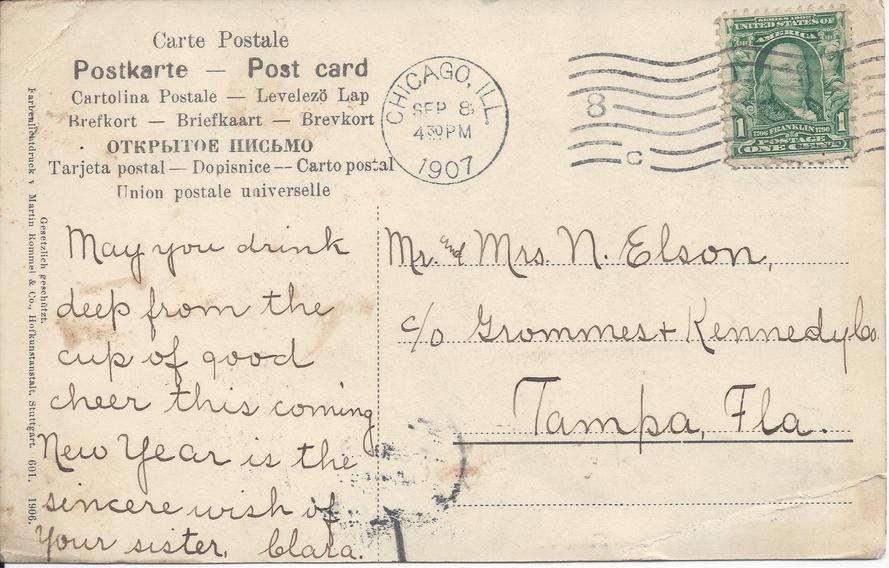 Carte Postale
Postkarte — Post card
Cartolina Postale — Levelező Lap
Brefkort — Briefkaart — Brevkort
ОТКРЫТОЕ ПИСЬМО
Tarjeta postal — Dopisnice — Carto postal
Union postale universelle
CHICAGO, ILL.
SEP 8
4 30 PM
1907
8
C
SERIES 1902
UNITED STATES OF
AMERICA
1706 FRANKLIN 1790
1 1
POSTAGE
ONE CENT
Farbenlichtdruck v. Martin Rommel & Co., Hofkunstanstalt, Stuttgart. 601. 1906.
Gesetzlich geschützt.
May you drink
deep from the
cup of good
cheer this coming
New Year is the
sincere wish of
Your sister, Clara.
Mr. and Mrs. N. Elson,
c/o Grommes + Kennedy Co.
Tampa, Fla.